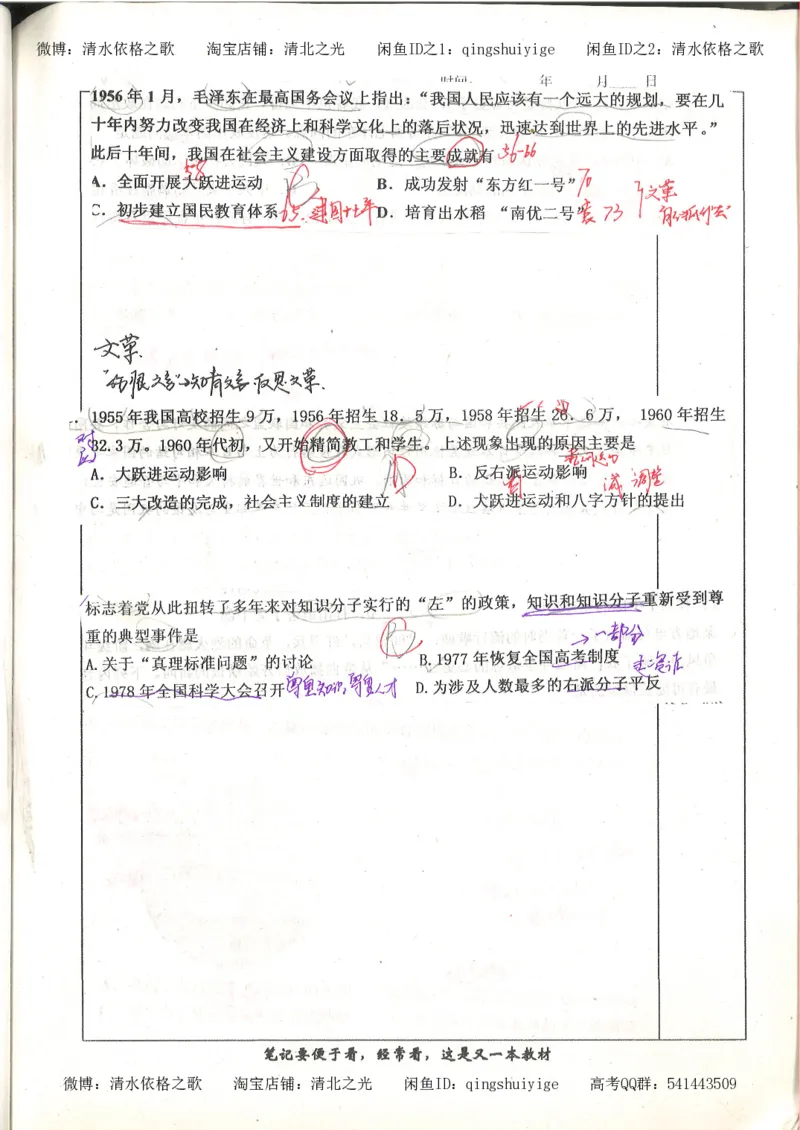 微博：清水依格之歌 淘宝店铺：清北之光 闲鱼ID之1：qingshuiyige 闲鱼ID之2：清水依格之歌
时间： 年 月 日
1956 年 1 月，毛泽东在最高国务会议上指出：“我国人民应该有一个远大的规划，要在几
十年内努力改变我国在经济上和科学文化上的落后状况，迅速达到世界上的先进水平。”
此后十年间，我国在社会主义建设方面取得的主要成就有 56-66
58
A．全面开展大跃进运动 B．成功发射“东方红一号” 70 文革
C．初步建立国民教育体系 D．培育出水稻 “南优二号” 73
文革.
反思文革.
1955 年我国高校招生 9 万，1956 年招生 18．5 万，1958 年招生 26．6 万， 1960 年招生
32.3 万。1960 年代初，又开始精简教工和学生。上述现象出现的原因主要是
A．大跃进运动影响 B．反右派运动影响
调整
C．三大改造的完成，社会主义制度的建立 D．大跃进运动和八字方针的提出
标志着党从此扭转了多年来对知识分子实行的“左”的政策，知识和知识分子重新受到尊
重的典型事件是
→一部分
A.关于“真理标准问题”的讨论 B.1977 年恢复全国高考制度
C.1978 年全国科学大会召开 尊重知识,尊重人才 D.为涉及人数最多的右派分子平反
笔记要便于看，经常看，这是又一本教材
微博：清水依格之歌 淘宝店铺：清北之光 闲鱼ID：qingshuiyige 高考QQ群：541443509